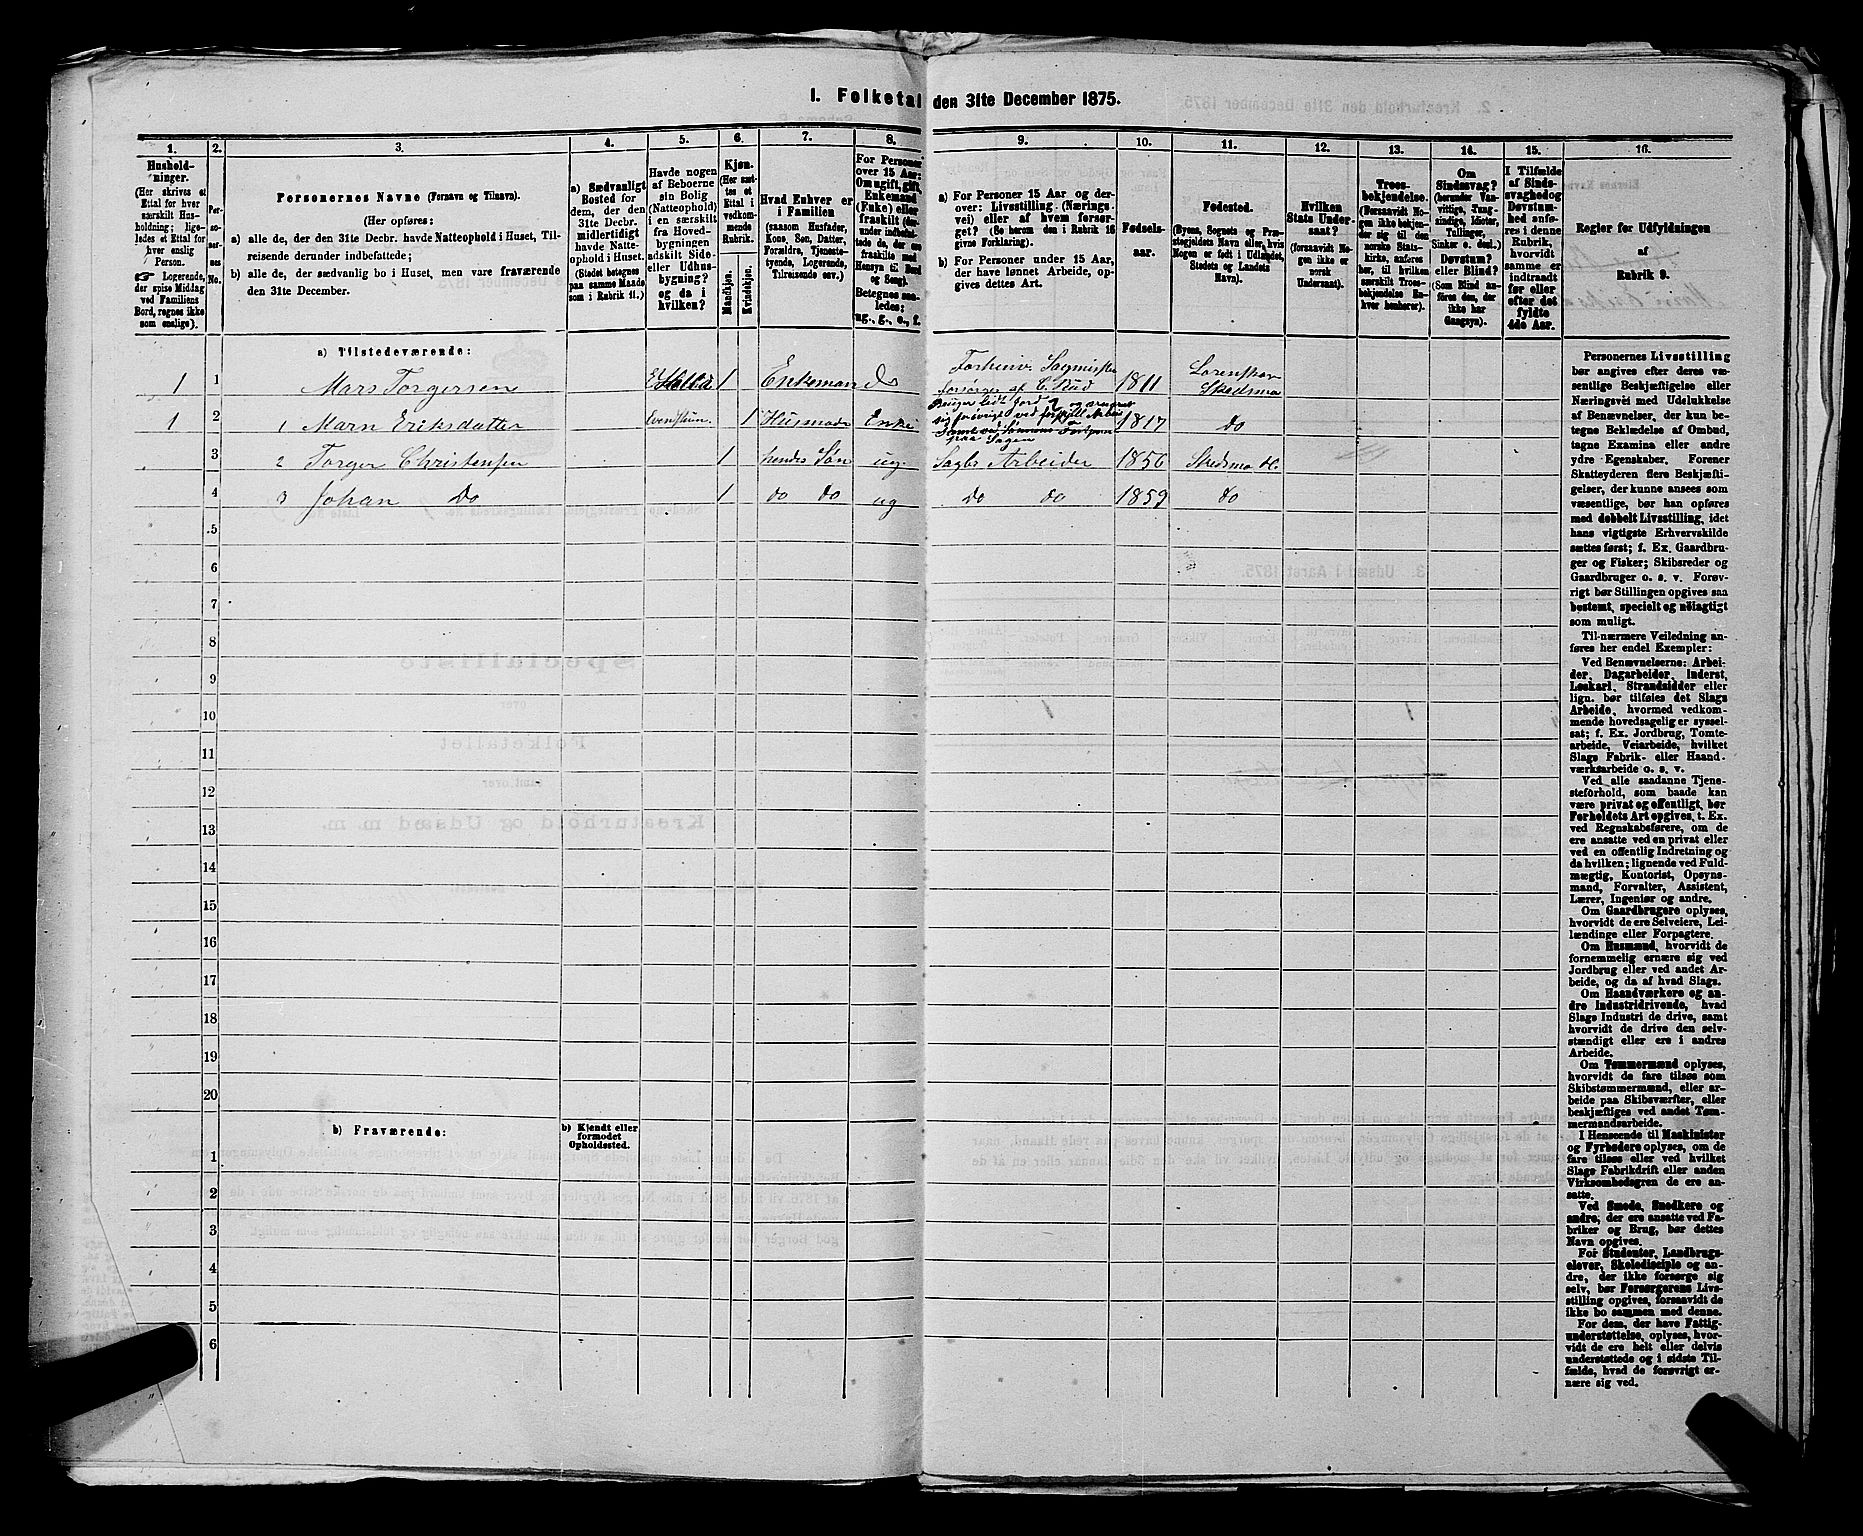 1. Folketal den 31te December 1875.
1.
2.
3.
4.
5.
6.
7.
8.
9.
10.
11.
12.
13.
14.
15.
16.
Hushold-
ninger.
(Her skrives et
Ettal for hver
særskilt Hus-
holdning; lige-
ledes et Ettal for
hver enslig
Person.
☞ Logerende,
der spise Middag
ved Familiens
Bord, regnes ikke
som enslige).
Per-
so-
ner-
nes
No.
Personernes Navne (Fornavn og Tilnavn).
(Her opføres:
a) alle de, der den 31te Decbr. havde Natteophold i Huset, Til-
reisende derunder indbefattede;
b) alle de, der sædvanlig bo i Huset, men vare fraværende
den 31te December.
a) Sædvanligt
Bosted for
dem, der den
31te Decbr.
midlertidigt
havde Natte-
ophold i Huset.
(Stedet betegnes
paa samme Maade
som i Rubrik 11.)
Havde nogen
af Beboerne
sin Bolig
(Natteophold)
i en særskilt
fra Hoved-
bygningen
adskilt Side-
eller Udhus-
bygning?
og da i
hvilken?
Kjøn.
(Her sæt-
tes et
Ettal i
vedkom-
mende
Rubrik.
Mandkjøn.
Kvindekjøn.
Hvad Enhver er
i Familien
(saasom Husfader,
Kone, Søn, Datter,
Forældre, Tjeneste-
tyende, Logerende,
Tilreisende osv.)
For Personer
over 15 Aar:
Om ugift, gift,
Enkemand
(Enke) eller
fraskilt
Betegnes saa-
ledes:
ug., g., e., f.
a) For Personer 15 Aar og der-
over: Livsstilling (Nærings-
vei) eller af hvem forsør-
get? (Se herom den i Rubrik 16
givne Forklaring).
b) For Personer under 15 Aar,
der have lønnet Arbeide, op-
gives dettes Art.
Fødsels-
aar.
Fødested.
(Byens, Sognets og Præ-
stegjeldets Navn eller, hvis
Nogen er født i Udlandet,
Stedets og Landets
Navn).
Hvilken
Stats Under-
saat?
(forsaavidt No-
gen ikke er
norsk
Undersaat).
Troes-
bekjendelse.
(Forsaavidt No-
gen ikke bekjen-
der sig til den
norske Stats-
kirke, anføres
her, til hvilken
særskilt Troes-
bekjendelse En-
hver henhører).
Om
Sindssvag?
(herunder Van-
vittige, Tung-
sindige, Idioter,
Tullinger,
Sinker o. desl.)
Døvstum?
eller Blind?
(Som Blind an-
føres den, der
ikke har
Gangsyn).
I Tilfælde
af Sinds-
svaghed og
Døvstum-
hed anfø-
res i denne
Rubrik,
hvorvidt
samme er
indtraadt
før eller
efter det
fyldte
4de Aar.
Regler for Udfyldningen
af
Rubrik 9.
a) Tilstedeværende:
1 1 Mars Torgersen 1 Enkemand do Forhenv. Sagmester 1811 Lorenskov
forsørges af C. Rud Skedsmo
1 2 1 Marn Eriksdatter 1 Enke 1817 do
3 2 Torger Christensen 1 hendes Søn ug. Sagbr Arbeider 1856 Skedsmo
4 3 Johan Do 1 do do ug do do 1859 do
5
6
7
8
9
10
11
12
13
14
15
16
17
18
19
20
b) Fraværende:
b) Kjendt eller
formodet
Opholdssted.
1
2
3
4
5
6
Personernes Livsstilling
bør angives efter deres væ-
sentlige Beskjæftigelse eller
Næringsvei med Udelukkelse
af Benævnelser, der kun be-
tegne Beklædelse af Ombud,
tagne Examina eller andre
ydre Egenskaber. Forener
Skatteyderen flere Beskjæfti-
gelser, der kunne ansees som
væsentlige, bør han opføres
med dobbelt Livsstilling, idet
hans vigtigste Erhvervskilde
sættes først; f. Ex. Gaardbru-
ger og Fisker; Skibsreder og
Gaardbruger o. s. v. Forøv-
rigt bør Stillingen opgives saa
bestemt, specielt og nøiagtigt
som muligt.
Til nærmere Veiledning an-
føres her endel Exempler:
Ved Benævnelserne: Arbei-
der, Dagarbeider, Inderst,
Løskarl, Strandsidder eller
lign. bør tilføies det Slags
Arbeide, hvormed vedkom-
mende hovedsagelig er syssel-
sat; f. Ex. Jordbrug, Tomte-
arbeide, Veiarbeide, hvilket
Slags Fabrik- eller Haand-
værksarbeide o. s. v.
Ved alle saadanne Tjene-
steforhold, som baade kan
være privat og offentligt, bør
Forholdets Art opgives, t. Ex.
ved Regnskabsførere, om de
ere ansatte ved en privat eller
ved en offentlig Indretning og
da hvilken; lignende ved Fuld-
mægtig, Kontorist, Opsyns-
mand, Forvalter, Assistent,
Lærer, Ingeniør og andre.
Om Gaardbrugere oplyses,
hvorvidt de ere Selveiere, Lei-
lændinge eller Forpagtere.
Om Husmænd, hvorvidt de
fornemmelig ernære sig ved
Jordbrug eller ved andet Ar-
beide, og da af hvad Slags.
Om Haandværkere og an-
dre Industridrivende, hvad
Slags Industri de drive, samt
hvorvidt de drive den selv-
stændigt eller ere i andres
Arbeide.
Om Tømmermænd oplyses,
hvorvidt de fare tilsøs som
Skibstømmermænd, eller ar-
beide paa Skibsværfter, eller
beskjæftiges ved andet Tøm-
mermandsarbeide.
I Henseende til Maskinister
og Fyrbødere oplyses, om de
fare tilsøs eller ved hvilket
Slags Fabrikdrift eller anden
Virksomhedsgren de ere an-
satte.
Ved Smede, Snedkere og
andre, der ere ansatte ved Fa-
briker og Brug, bør dettes
Navn opgives.
For Studenter, Landbrugs-
elever, Skoledisciple og an-
dre, der ikke forsørge sig
selv, bør Forsørgerens Livs-
stilling opgives, forsaavidt de
ikke bo sammen med denne.
For dem, der have Fattig-
understøttelse, oplyses, hvor-
vidt de ere helt eller delvis
understøttede og i sidste Til-
fælde, hvad de forøvrigt er-
nære sig ved.